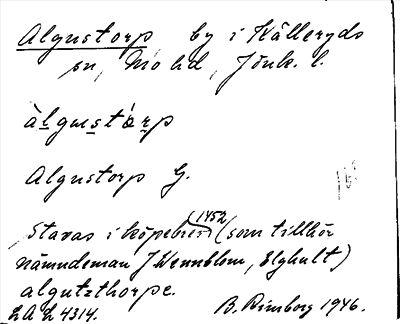 Algustorp, by i Kålleryds
sn, Mo hd, Jönk. l.
àlgustárp
Algustorp G.
Stavas i köpebrev 1452 (som tillhör
nämndeman J Wennblom, Elghult)
algutzthorpe.
LAL 4314. B. Rimborg 1946.